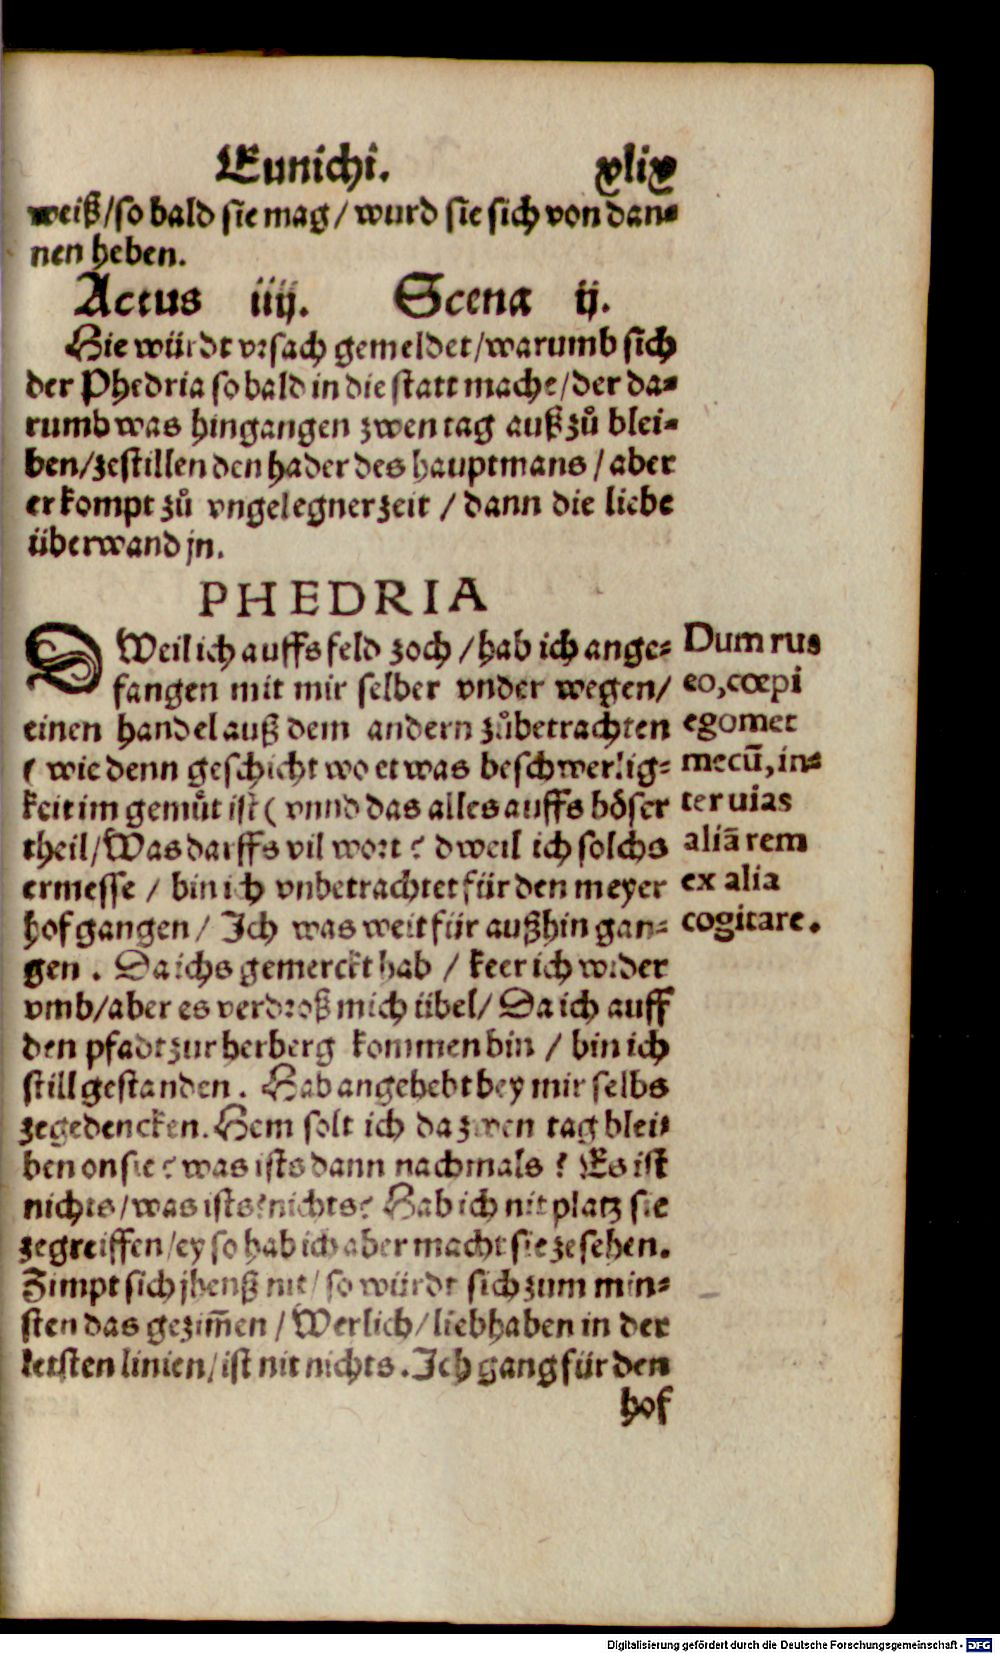 Eunichi. xlix
weiß/so bald sie mag/ wurd sie sich von dan⸗
nen heben.
Actus iiij. Scena ij.
Hie würdt vrsach gemeldet/warumb sich
der Phedria so bald in die statt mache/der da⸗
rumb was hingangen zwen tag auß zů blei⸗
ben/zestillen den hader des hauptmans/aber
er kompt zů vngelegner zeit / dann die liebe
überwand jn.
PHEDRIA
DWeil ich auffs feld zoch /hab ich ange⸗
fangen mit mir selber vnder wegen/
einen handel auß dem andern zůbetrachten
( wie denn geschicht wo etwas beschwerlig⸗
keit im gemůt ist ( vnnd das alles auffs böser
theil/Was darffs vil wort? dweil ich solchs
ermesse / bin ich vnbetrachtet für den meyer
hof gangen/ Ich was weit für außhin gan⸗
gen . Da ichs gemerckt hab / keer ich wider
vmb/aber es verdroß mich übel/ Da ich auff
den pfadt zur herberg kommen bin / bin ich
still gestanden . Hab angehebt bey mir selbs
zegedencken. Hem solt ich da zwen tag blei⸗
ben on sie? was ists dann nachmals ? Es ist
nichts/was ists?nichts? Hab ich nit platz sie
zegreiffen/ey so hab ich aber macht sie zesehen.
Zimpt sich jhenß nit/ so würdt sich zum min⸗
sten das gezim̄en /Werlich/liebhaben in der
letsten linien/ist nit nichts. Ich gang für den
hof
Dum rus
eo, cœpi
egomet
mecū, in⸗
ter uias
aliā rem
ex alia
cogitare.
Digitalisierung gefördert durch die Deutsche Forschungsgemeinschaft - DFG